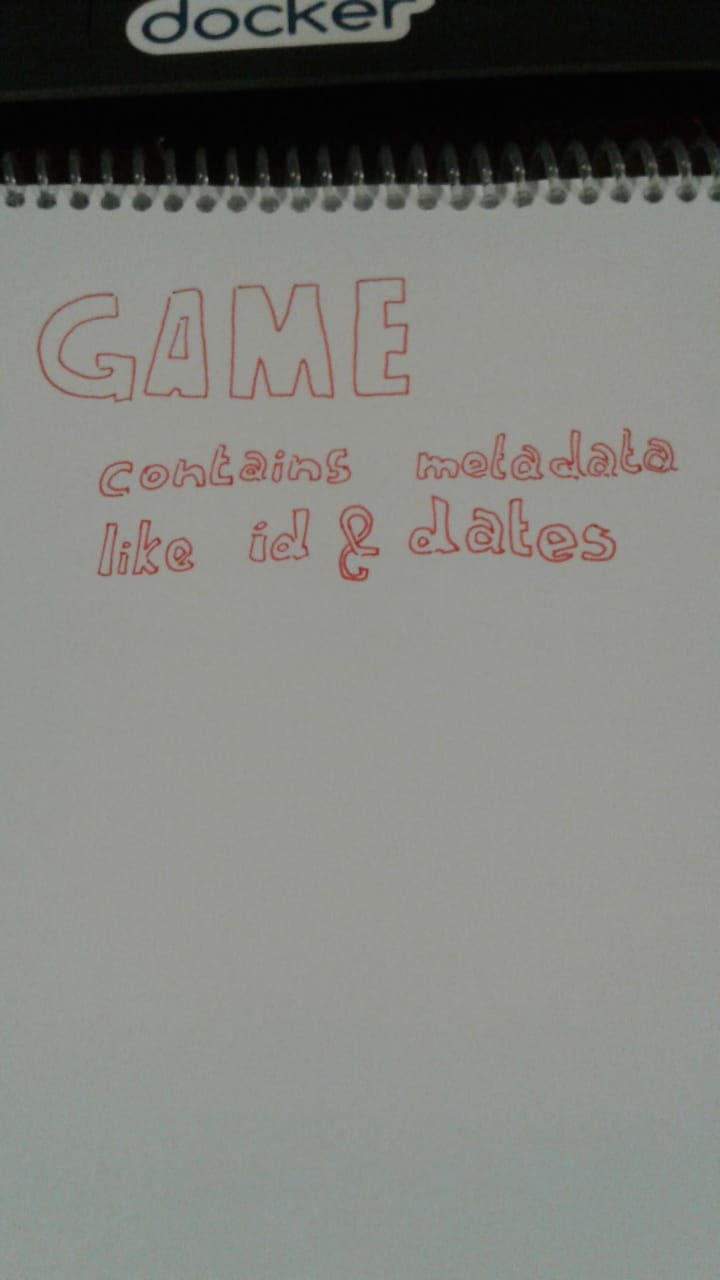 docker
GAME
contains metadata
like id & dates